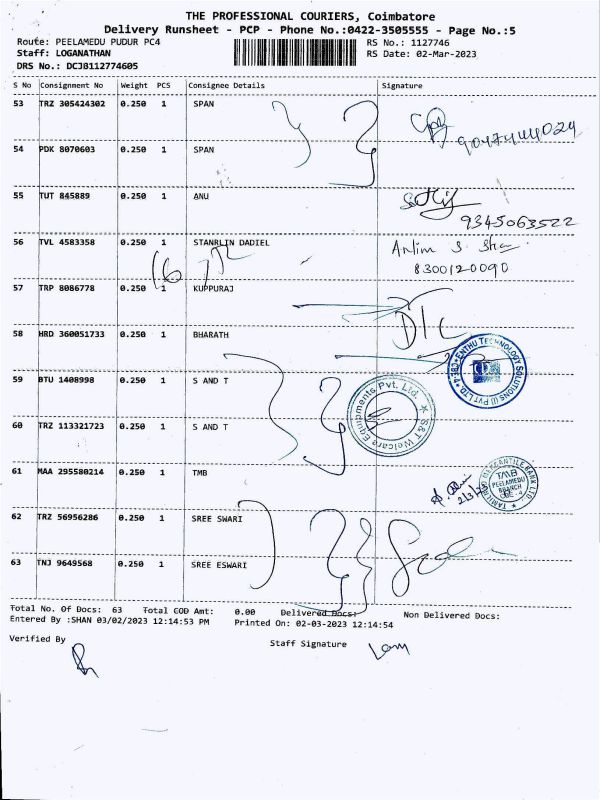 THE PROFESSIONAL COURIERS, Coimbatore
Delivery Runsheet - PCP - Phone No.:0422-3505555 - Page No.:5
Route: PEELAMEDU PUDUR PC4 RS No.: 1127746
Staff: LOGANATHAN RS Date: 02-Mar-2023
DRS No.: DCJB112774605
S No Consignment No Weight PCS Consignee Details Signature
53 TRZ 305424302 0.250 1 SPAN
54 PDK 8070603 0.250 1 SPAN
55 TUT 845889 0.250 1 ANU
9345063522
56 TVL 4583358 0.250 1 STANRLIN DADIEL
8300120090
57 TRP 8086778 0.250 1 KUPPURAJ
D/C
58 HRD 360051733 0.250 1 BHARATH
ENTHU TECHNOLOGY SOLUTIONS (I) PVT LTD.
59 BTU 1408998 0.250 1 S AND T
S&T Welcare Equipments Pvt. Ltd.
60 TRZ 113321723 0.250 1 S AND T
61 MAA 295580214 0.250 1 TMB
2/3/23
TAMILNAD MERCANTILE BANK LTD
TMB
PEELAMEDU
BRANCH
62 TRZ 56956286 0.250 1 SREE SWARI
63 TNJ 9649568 0.250 1 SREE ESWARI
Total No. Of Docs: 63 Total COD Amt: 0.00 Delivered Docs: Non Delivered Docs:
Entered By :SHAN 03/02/2023 12:14:53 PM Printed On: 02-03-2023 12:14:54
Verified By Staff Signature